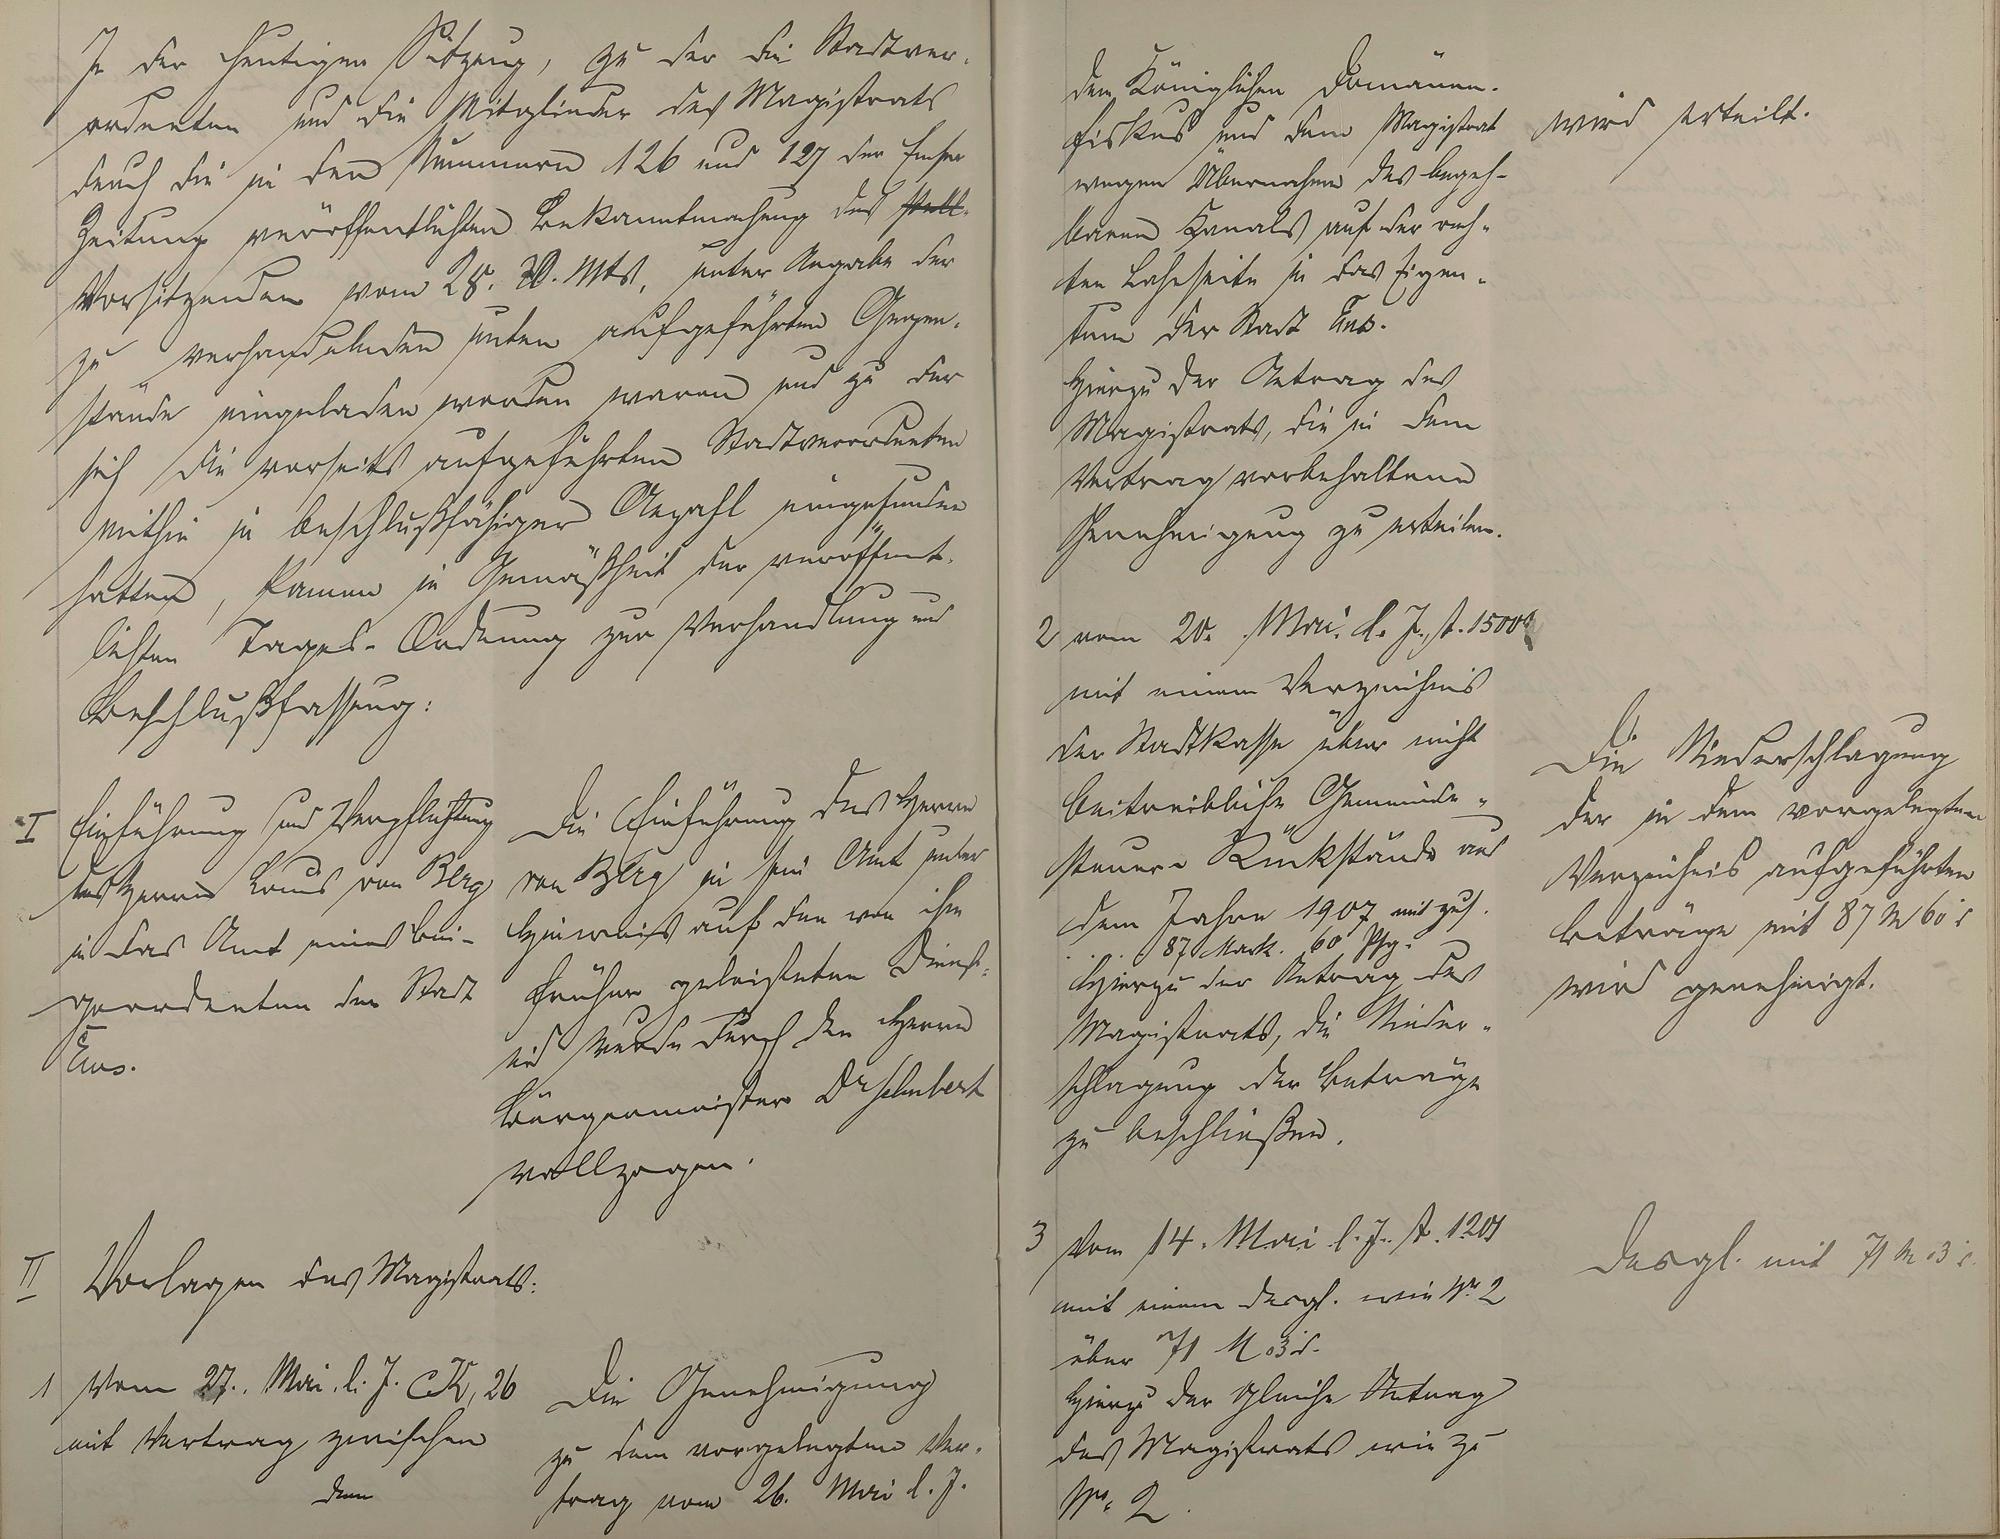 In der heutigen Sitzung, zu der die Stadtver-
ordneten und die Mitglieder des Magistrats
durch die in den Nummern 126 und 127 der Emser
Zeitung veröffentlichten Bekanntmachung des stell-
Vorsitzenden vom 28. v. Mts, unter Angabe der
zu verhandelnden unten aufgeführten Gegen-
stände eingeladen worden waren und zu der
sich die vorseits aufgeführten Stadtverordneten
mithin in beschlußfähiger Anzahl eingefunden
hatten, kamen in Gemäßheit der veröffent-
lichten Tages-Ordnung zur Verhandlung und
Beschlußfassung:
I Einführung und Verpflichtung
des Herrn Louis von Berg
in das Amt eines Bei-
geordneten der Stadt
Ems.
Die Einführung des Herrn
von Berg in sein Amt unter
Hinweis auf den von ihm
früher geleisteten Dienst-
eid wurde durch den Herrn
Bürgermeister Dr Schubert
vollzogen.
II Vorlagen des Magistrats:
1 Vom 27. Mai l. J. CK, 26
mit Vertrag zwischen
dem
Die Genehmigung
zu dem vorgelegten Ver-
trag vom 26. Mai l. J.
dem Königlichen Domänen-
fiskus und dem Magistrat
wegen Übernahme des begeh-
baren Kanals auf der rech-
ten Lahnseite in das Eigen-
tum der Stadt Ems.
Hierzu der Antrag des
Magistrats, die in dem
Vertrag vorbehaltene
Genehmigung zu erteilen.
wird erteilt.
2 vom 20. Mai l. J. A. 1500
mit einem Verzeichnis
der Stadtkasse über nicht
beitreibliche Gemeinde-
steuer-Rückstände aus
dem Jahre 1907 mit zus.
87 Mark. 60 Pfg.
Hierzu der Antrag des
Magistrats, die Nieder-
schlagung der Beträge
zu beschließen.
Die Niederschlagung
der in dem vorgelegten
Verzeichnis aufgeführten
Beträge mit 87 M 60 d
wird genehmigt.
3 Vom 14. Mai l. J. A. 1201
mit einem desgl. wie Nr. 2
über 71 M 03 d.
Hierzu der gleiche Antrag
des Magistrats wie zu
Nr. 2.
Desgl. mit 71 M 03 d.